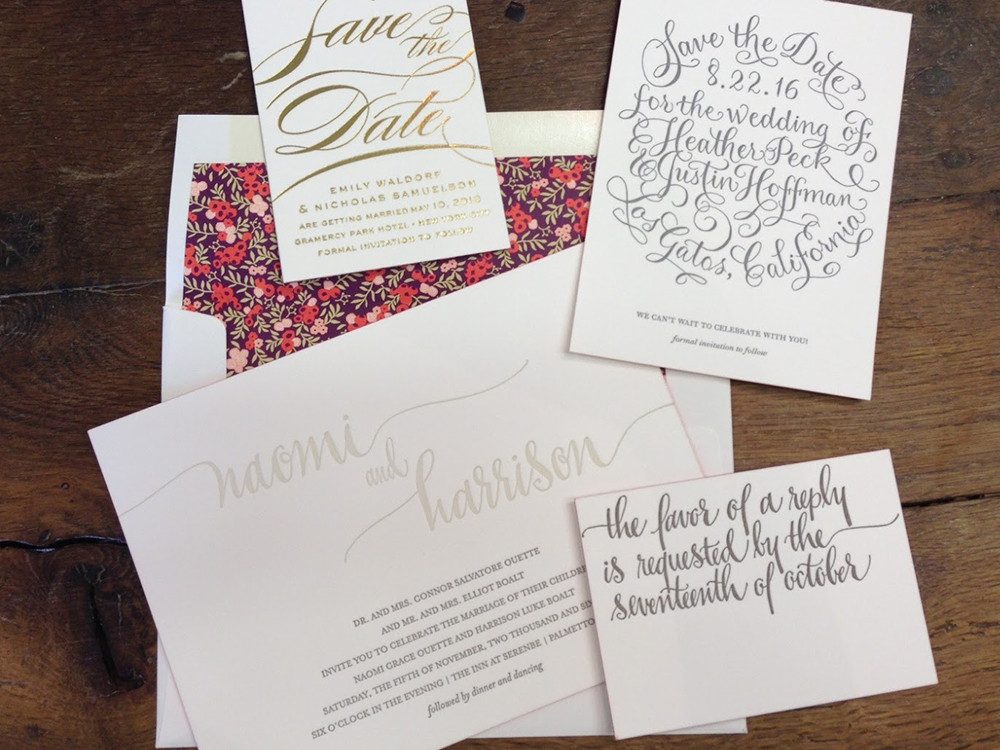 Save
the
Date
EMILY WALDORF
& NICHOLAS SAMUELSON
ARE GETTING MARRIED MAY 10, 2016
GRAMERCY PARK HOTEL • NEW YORK CITY
FORMAL INVITATION TO FOLLOW
Save the Date
8.22.16
for the wedding of
Heather Peck
& Justin Hoffman
Los Gatos, California
WE CAN'T WAIT TO CELEBRATE WITH YOU!
formal invitation to follow
naomi
and
harrison
DR. AND MRS. CONNOR SALVATORE OUETTE
AND MR. AND MRS. ELLIOT BOALT
INVITE YOU TO CELEBRATE THE MARRIAGE OF THEIR CHILDRE
NAOMI GRACE OUETTE AND HARRISON LUKE BOALT
SATURDAY, THE FIFTH OF NOVEMBER, TWO THOUSAND AND SIX
SIX O'CLOCK IN THE EVENING | THE INN AT SERENBE | PALMETTO
followed by dinner and dancing
the favor of a reply
is requested by the
seventeenth of october